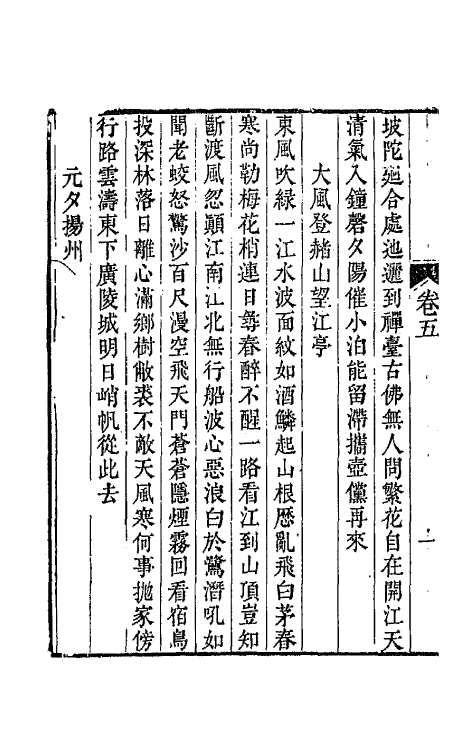 卷五
一
坡陀迴合處迆邐到禪臺古佛無人問繁花自在開江天
清氣入鐘磬夕陽催小泊能留滯攜壺儻再來
大風登赭山望江亭
東風吹綠一江水波面紋如酒鱗起山根歷亂飛白茅春
寒尚勒梅花梢連日尋春醉不醒一路看江到山頂豈知
斷渡風忽顛江南江北無行船波心惡浪白於鷺潛吼如
聞老蛟怒驚沙百尺漫空飛天門蒼蒼隱煙霧回看宿鳥
投深林落日離心滿鄉樹敝裘不敵天風寒何事拋家傍
行路雲濤東下廣陵城明日峭帆從此去
元夕揚州